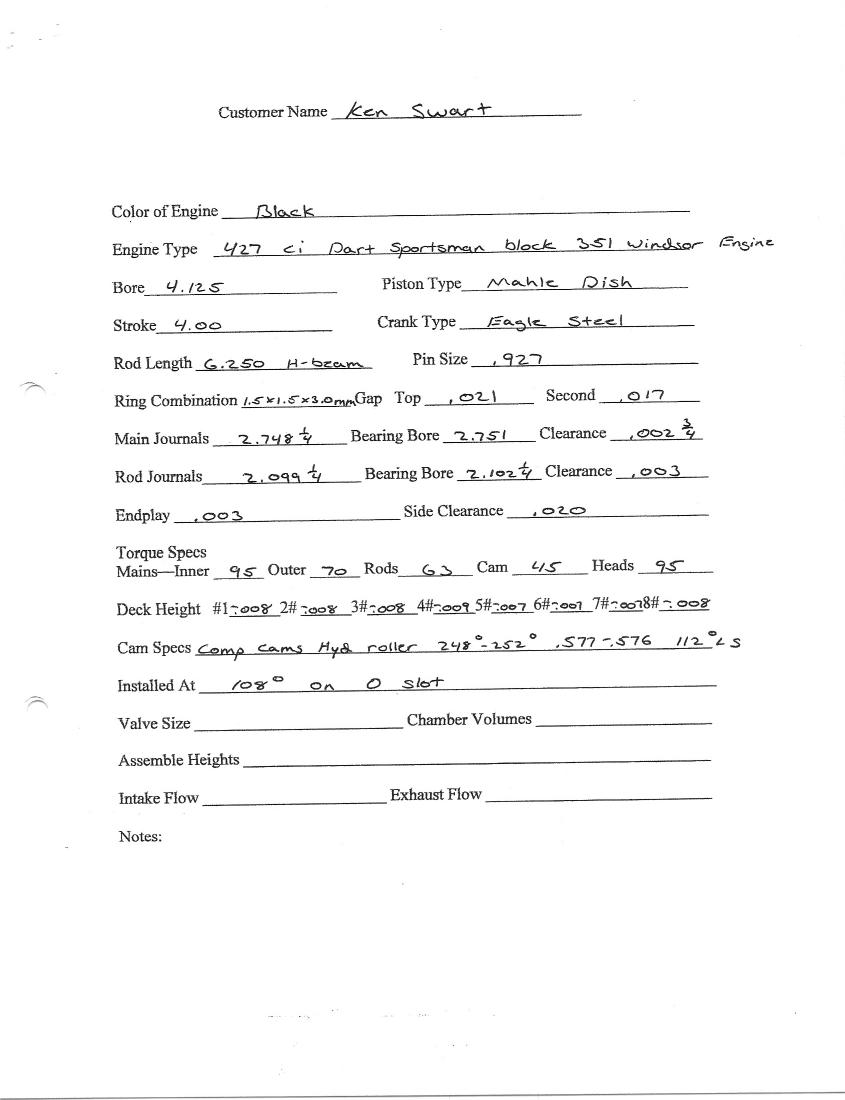 Customer Name Ken Swart
Color of Engine Black
Engine Type 427 ci Dart Sportsman block 351 Windsor Engine
Bore 4.125 Piston Type Mahle Dish
Stroke 4.00 Crank Type Eagle Steel
Rod Length 6.250 H-beam Pin Size .927
Ring Combination 1.5x1.5x3.0mm Gap Top .021 Second .017
Main Journals 2.748 1/4 Bearing Bore 2.751 Clearance .002 3/4
Rod Journals 2.099 1/4 Bearing Bore 2.102 1/4 Clearance .003
Endplay .003 Side Clearance .020
Torque Specs
Mains—Inner 95 Outer 70 Rods 63 Cam 45 Heads 95
Deck Height #1 -.008 2# -.008 3# -.008 4# -.009 5# -.007 6# -.007 7# -.007 8# -.008
Cam Specs Comp Cams Hyd roller 248°-252° .577-.576 112° LS
Installed At 108° on 0 slot
Valve Size Chamber Volumes
Assemble Heights
Intake Flow Exhaust Flow
Notes: